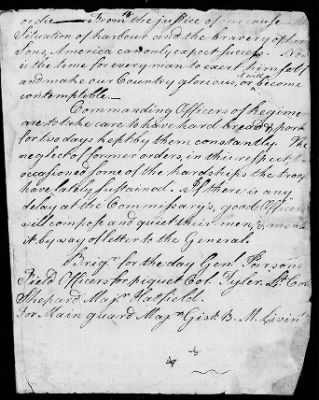 or die — From the justice of our cause
Situation of harbour and the bravery of her
Sons, America can only expect success. Now
is the time for every man to exert himself
and make our Country glorious, or it will become
contemptable. —
Commanding Officers of Regimen
are to take care to have hard bread & pork
for two days kept by them constantly. The
neglect of former orders, in this respect,
occasioned some of the hardships the troops
have lately sustained. If there is any
delay at the Commissary's, good Officers
will compose and quiet their men, &
it by way of letter to the General.
Brigr. for the day Genl. Parsons
Field Officers for piquet Col. Tyler. Lt. Col.
Shepard Majr. Hatfield.
For Main guard Majr. Gist. B. M. Livin